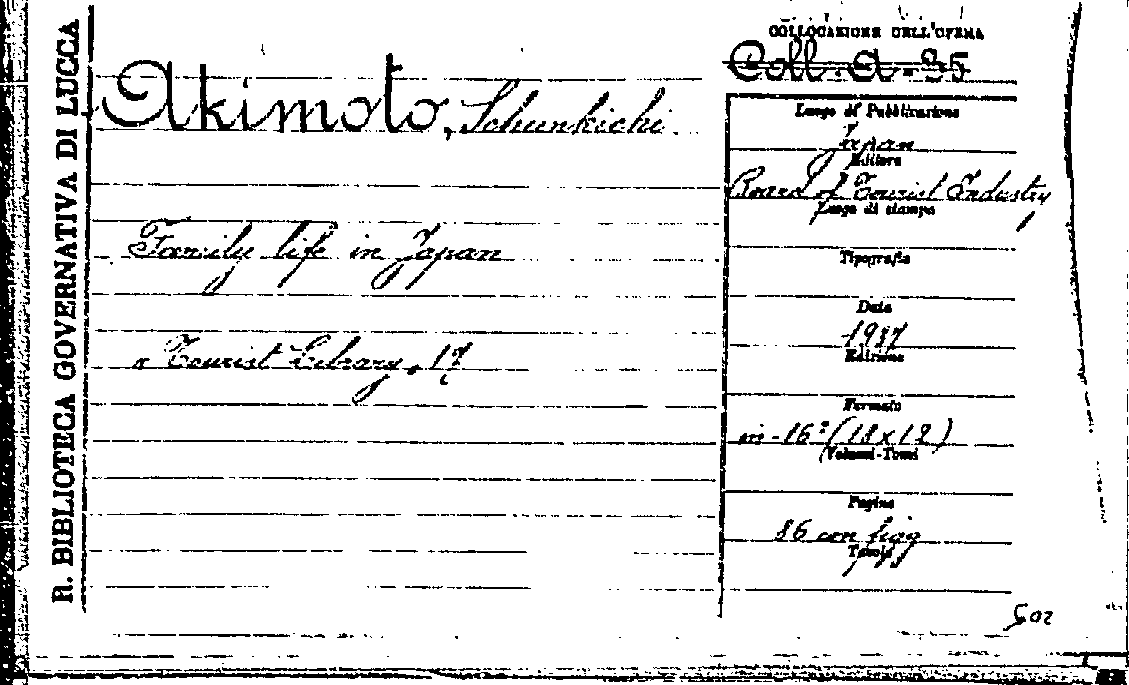 R. BIBLIOTECA GOVERNATIVA DI LUCCA
COLLOCAZIONE DELL'OPERA
Coll. A. 95
Akimoto, Schunkichi
Family life in Japan
"Tourist Library, 17
Luogo di Pubblicazione
Japan
Editore
Board of Tourist Industry
Luogo di stampa
Tipografia
Data
1937
Edizione
Formato
in-16° (18x12)
Volumi-Tomi
Pagine
86 con figg
Tavole